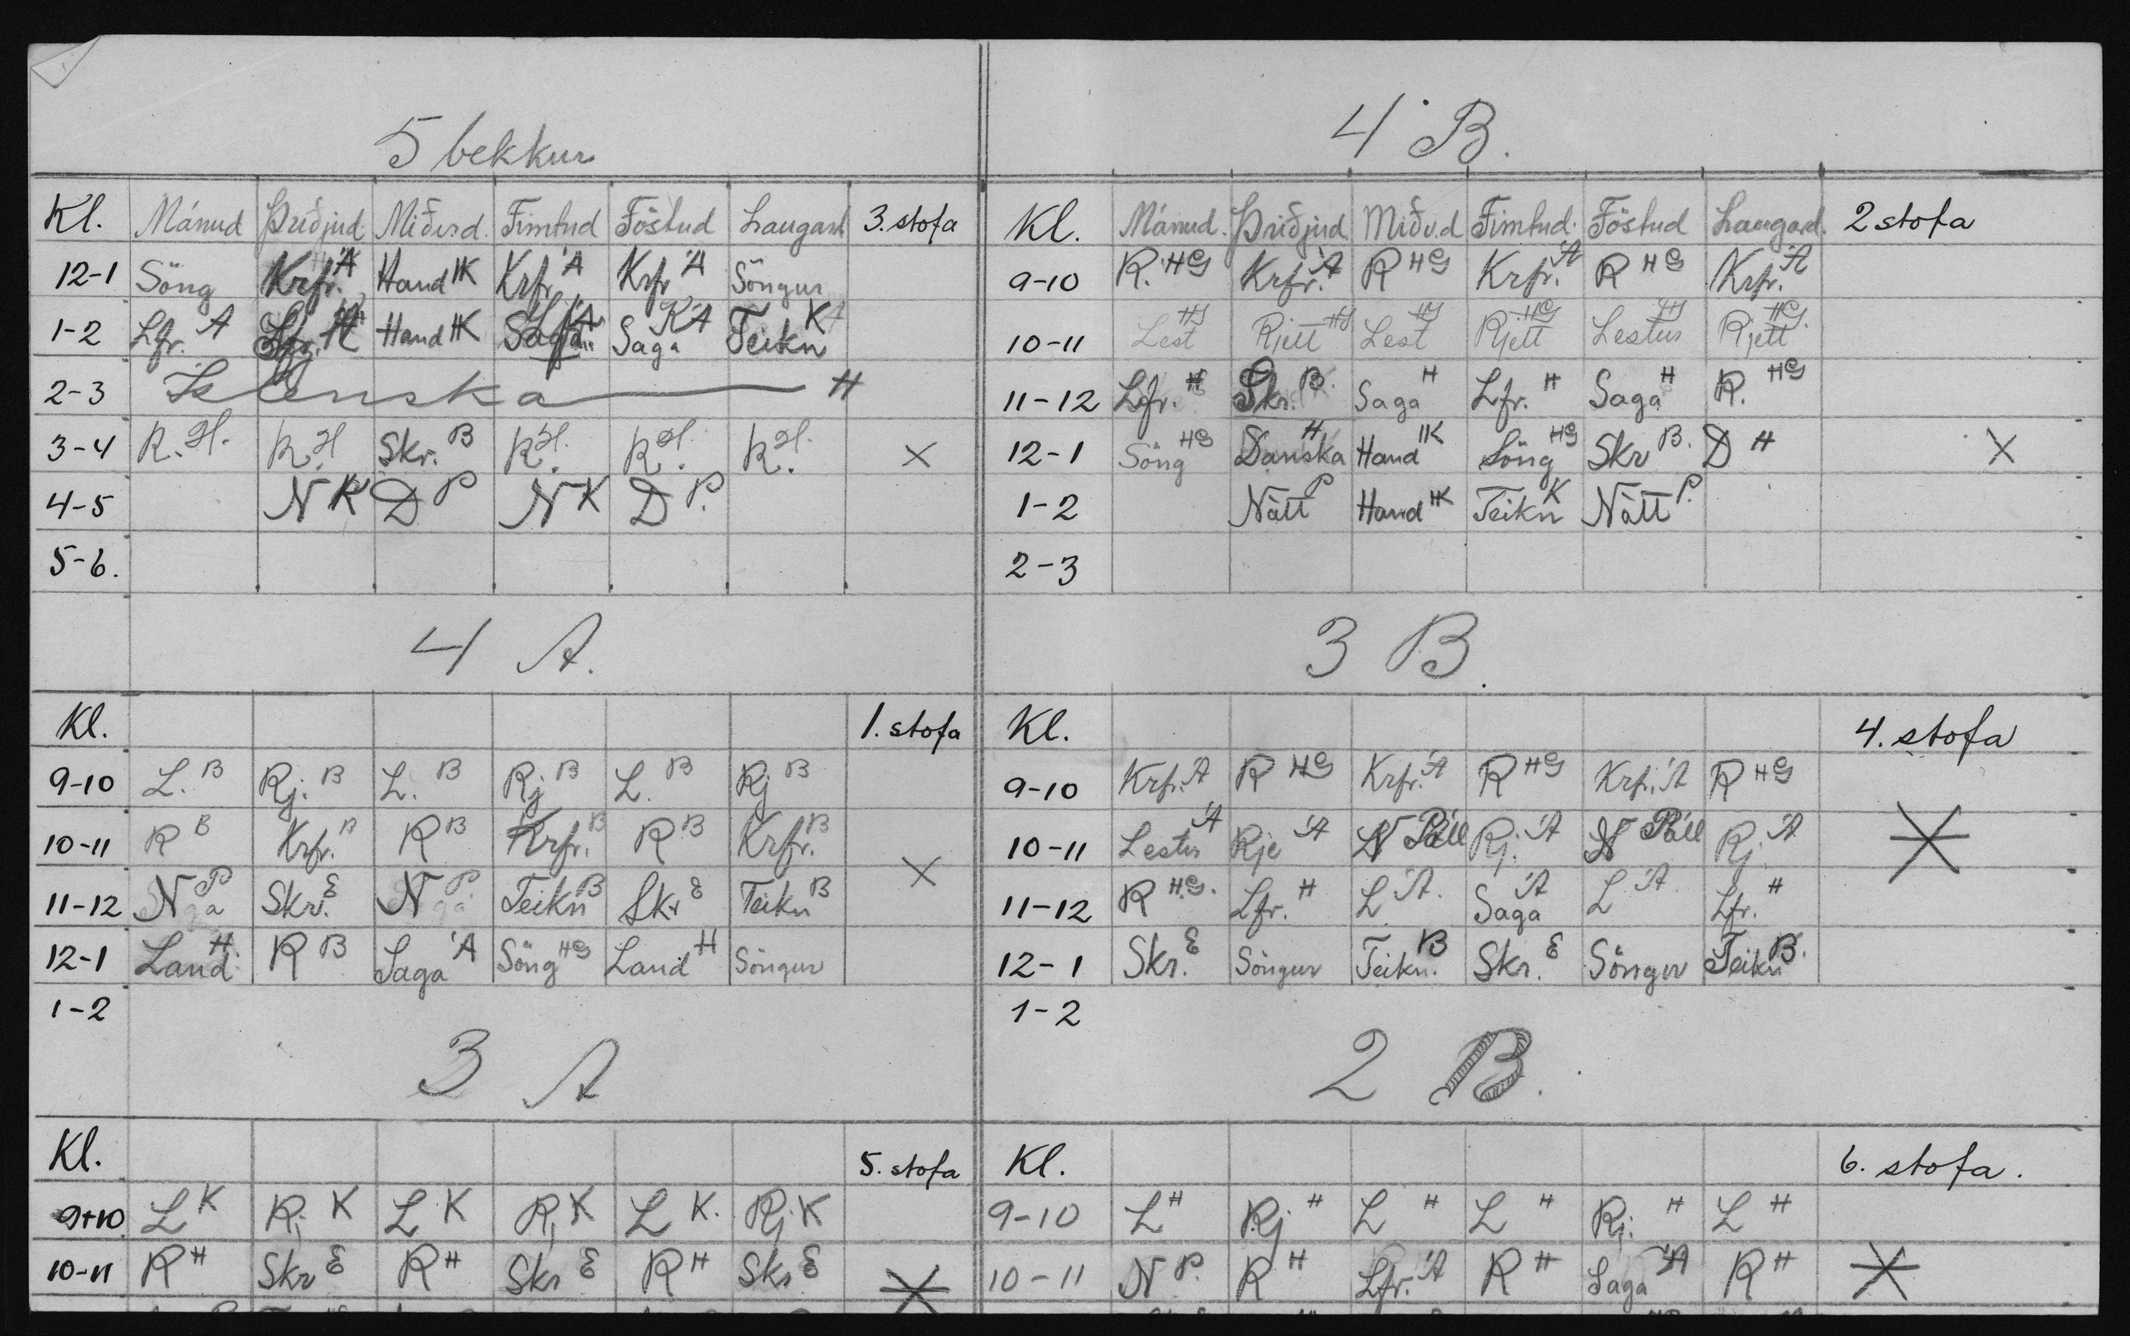 5 bekkur
Kl. Mánud Þriðjud Miðvd. Fimtud Föstud Laugard 3. stofa
12-1 Söng Krfr. Á Hand IK Krfr Á Krfr Á Söngur
1-2 Lfr. A Hand IK Saga K Á Teikn K
2-3 Íslenska H
3-4 R. H. R. H. Skr. B R. H. R. H. R. H. X
4-5 N K D P N K D P.
5-6.
4 A.
Kl. 1. stofa
9-10 L. B Rj. B L. B Rj B L. B Rj B
10-11 R B Krfr. B R B Krfr. B R B Krfr. B X
11-12 N P Skr. E N P Teikn B Skr E Teikn B
12-1 Land. H R B Saga Á Söng HG Land H Söngur
1-2
3 A
Kl. 5. stofa
9+10 L K Rj K L K Rj K L K. Rj K
10-11 R H Skr E R H Skr E R H Skr E
4 B.
Kl. Mánud. Þriðjud. Miðv.d Fimtud. Föstud Laugard. 2 stofa
9-10 R. HG Krfr. Á R HG Krfr. Á R HG Krfr. Á
10-11 Lest HG Rjett HG Lest HG Rjett HG Lestur HG Rjett HG.
11-12 Lfr. H Skr. B. Saga H Lfr. H Saga H R. HG
12-1 Söng HG Danska H Hand IK Söng HG Skr B. D H X
1-2 Nátt P Hand IK Teikn K Nátt P.
2-3
3 B.
Kl. 4. stofa
9-10 Krfr. Á R HG Krfr. Á R HG Krfr. Á R HG
10-11 Lestur Á Rje Á N Páll Rj. Á N Páll Rj. Á
11-12 R H.G. Lfr. H L Á. Saga Á L Á. Lfr. H
12-1 Skr. E Söngur Teikn. B Skr. E Söngur Teikn B.
1-2
2 B.
Kl. 6. stofa.
9-10 L H Rj H L H L H Rj. H L H
10-11 N P. R H Lfr. Á R H Saga Á R H